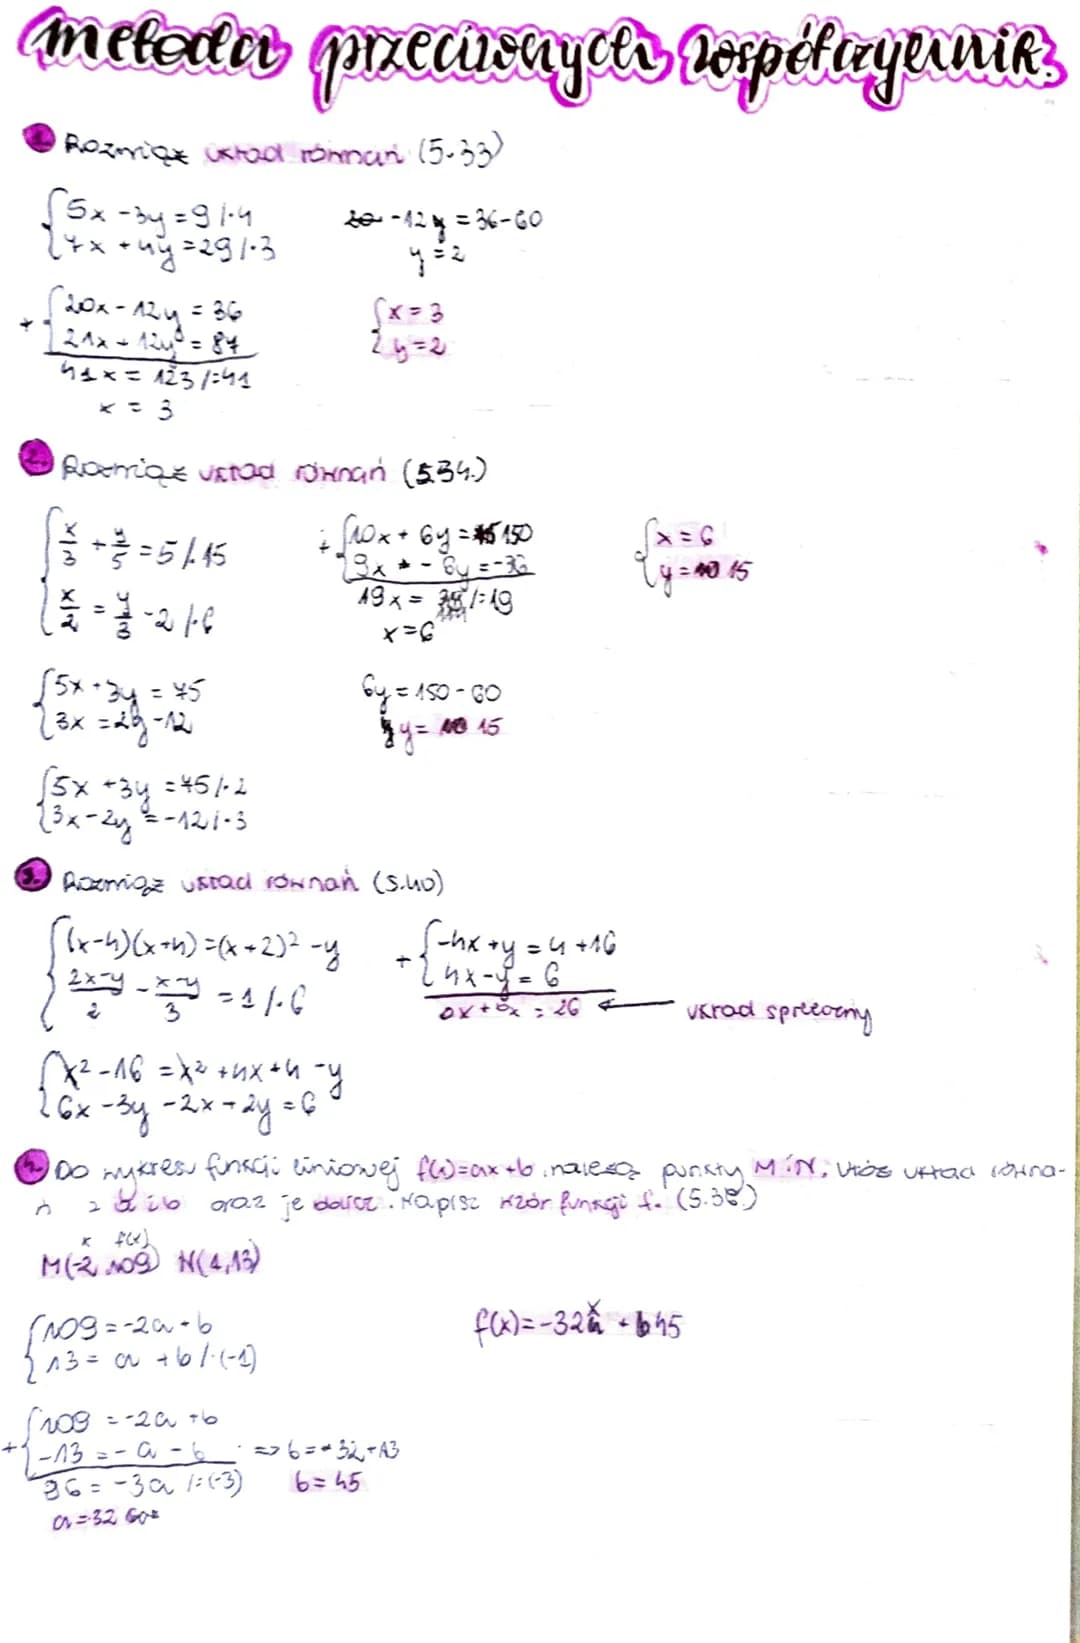 metoda przeciwnych współczynnik.
1. Rozwiąż układ równań (5.33)
5x - 3y = 9 /·4
7x + 4y = 29 /·3
-12y = 36-60
y = 2
20x - 12y = 36
+
21x + 12y = 87
41x = 123 /:41
x = 3
x = 3
y = 2
2. Rozwiąż układ równań (5.34.)
x/3 + y/5 = 5 /·15
x/2 = y/3 - 2 /·6
5x + 3y = 75
3x = 2y - 12
5x + 3y = 75 /·2
3x - 2y = -12 /·3
+
10x + 6y = 150
9x - 6y = -36
19x = /:19
x = 6
6y = 150 - 60
y = 15
x = 6
y = 15
3. Rozwiąż układ równań (5.40)
(x-4)(x+4) = (x+2)² - y
2x-y/2 - x-y/3 = 1 /·6
x² - 16 = x² + 4x + 4 - y
6x - 3y - 2x + 2y = 6
+
-4x + y = 4 + 16
4x - y = 6
0x + 0x = 26 ← układ sprzeczny
4. Do wykresu funkcji liniowej f(x)=ax+b należą punkty M i N. Ułóż układ równa-
ń z a i b oraz je oblicz. Napisz wzór funkcji f. (5.38.)
x f(x)
M(-2, 109) N(1,13)
109 = -2a + b
13 = a + b /·(-1)
f(x) = -32x + 45
+
109 = -2a + b
-13 = -a - b
=> b = +32 + 13
96 = -3a /:(-3)
b = 45
a = -32